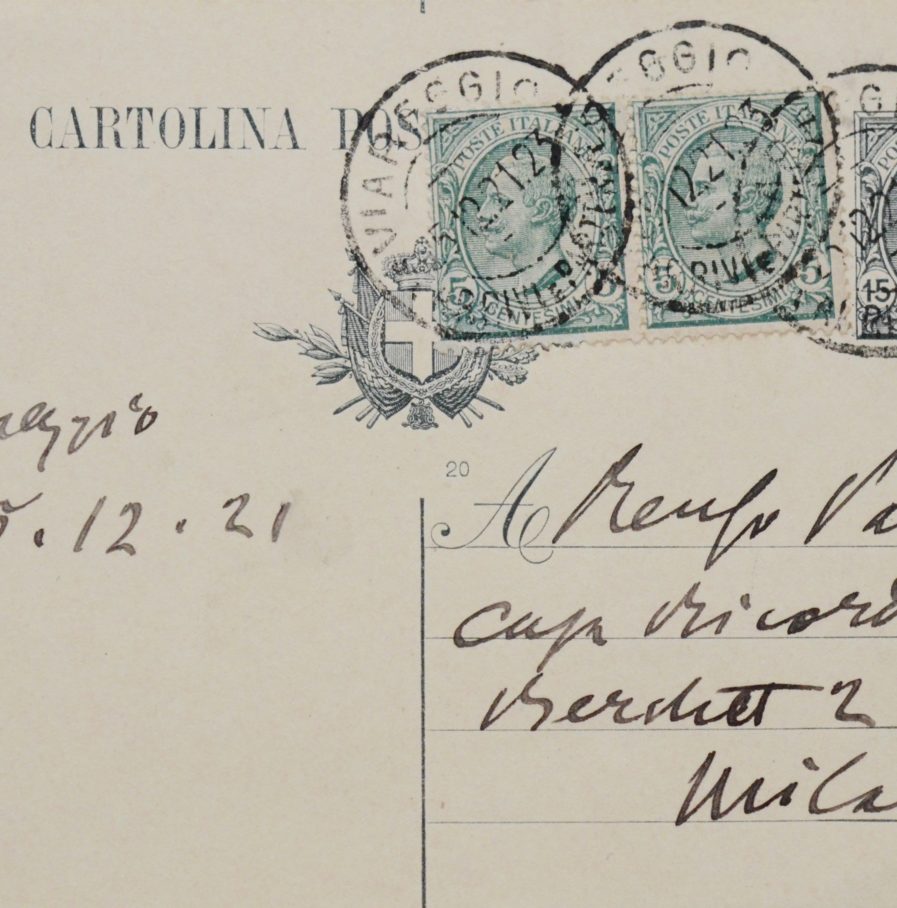 CARTOLINA POS
VIAREGGIO
12.21.23
RIVIERA
EGGIO
12.21
RIVIE
POSTE ITALIANE
5 CENTESIMI 5
POSTE ITALIANE
5 CENTESIMI
15
eggio
5.12.21
20
A Renzo Va
casa Ricord
Berchett 2
Mila